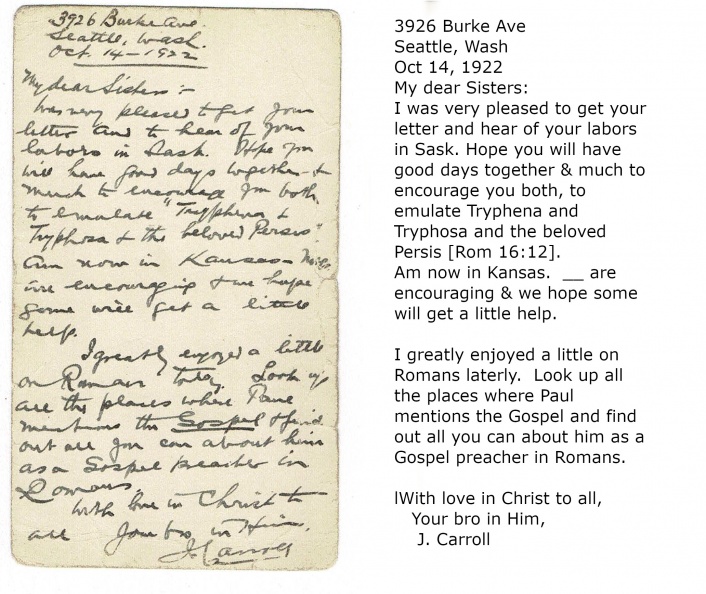 3926 Burke Ave.
Seattle, Wash.
Oct. 14-1922
My dear Sisters :-
Was very pleased to get your
letter and to hear of your
labors in Sask. Hope you
will have good days together &
much to encourage you both,
to emulate "Tryphena &
Tryphosa & the beloved Persis".
Am now in Kansas -
are encouraging & we hope
some will get a little
help.
I greatly enjoyed a little
on Romans today. Look up
all the places where Paul
mentions the Gospel & find
out all you can about him
as a Gospel preacher in
Romans.
With love in Christ to
all Your bro. in Him,
J. Carroll
3926 Burke Ave
Seattle, Wash
Oct 14, 1922
My dear Sisters:
I was very pleased to get your
letter and hear of your labors
in Sask. Hope you will have
good days together & much to
encourage you both, to
emulate Tryphena and
Tryphosa and the beloved
Persis [Rom 16:12].
Am now in Kansas. __ are
encouraging & we hope some
will get a little help.
I greatly enjoyed a little on
Romans laterly. Look up all
the places where Paul
mentions the Gospel and find
out all you can about him as a
Gospel preacher in Romans.
lWith love in Christ to all,
Your bro in Him,
J. Carroll